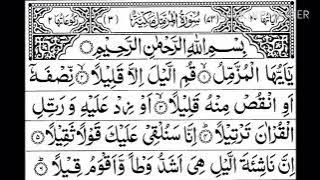 اٰيَاتُهَا ٢٠ (٧٣) سُوْرَةُ الْمُزَّمِّلِ مَكِّيَّةٌ (٣) رُكُوْعَاتُهَا ٢
بِسْمِ اللّٰهِ الرَّحْمٰنِ الرَّحِيْمِ
يٰۤاَيُّهَا الْمُزَّمِّلُ ۙ قُمِ الَّيْلَ اِلَّا قَلِيْلًا ۙ نِّصْفَهٗۤ
اَوِ انْقُصْ مِنْهُ قَلِيْلًا ۙ اَوْ زِدْ عَلَيْهِ وَ رَتِّلِ
الْقُرْاٰنَ تَرْتِيْلًا ؕ اِنَّا سَنُلْقِيْ عَلَيْكَ قَوْلًا ثَقِيْلًا
اِنَّ نَاشِئَةَ الَّيْلِ هِيَ اَشَدُّ وَطْاً وَّ اَقْوَمُ قِيْلًا ؕ